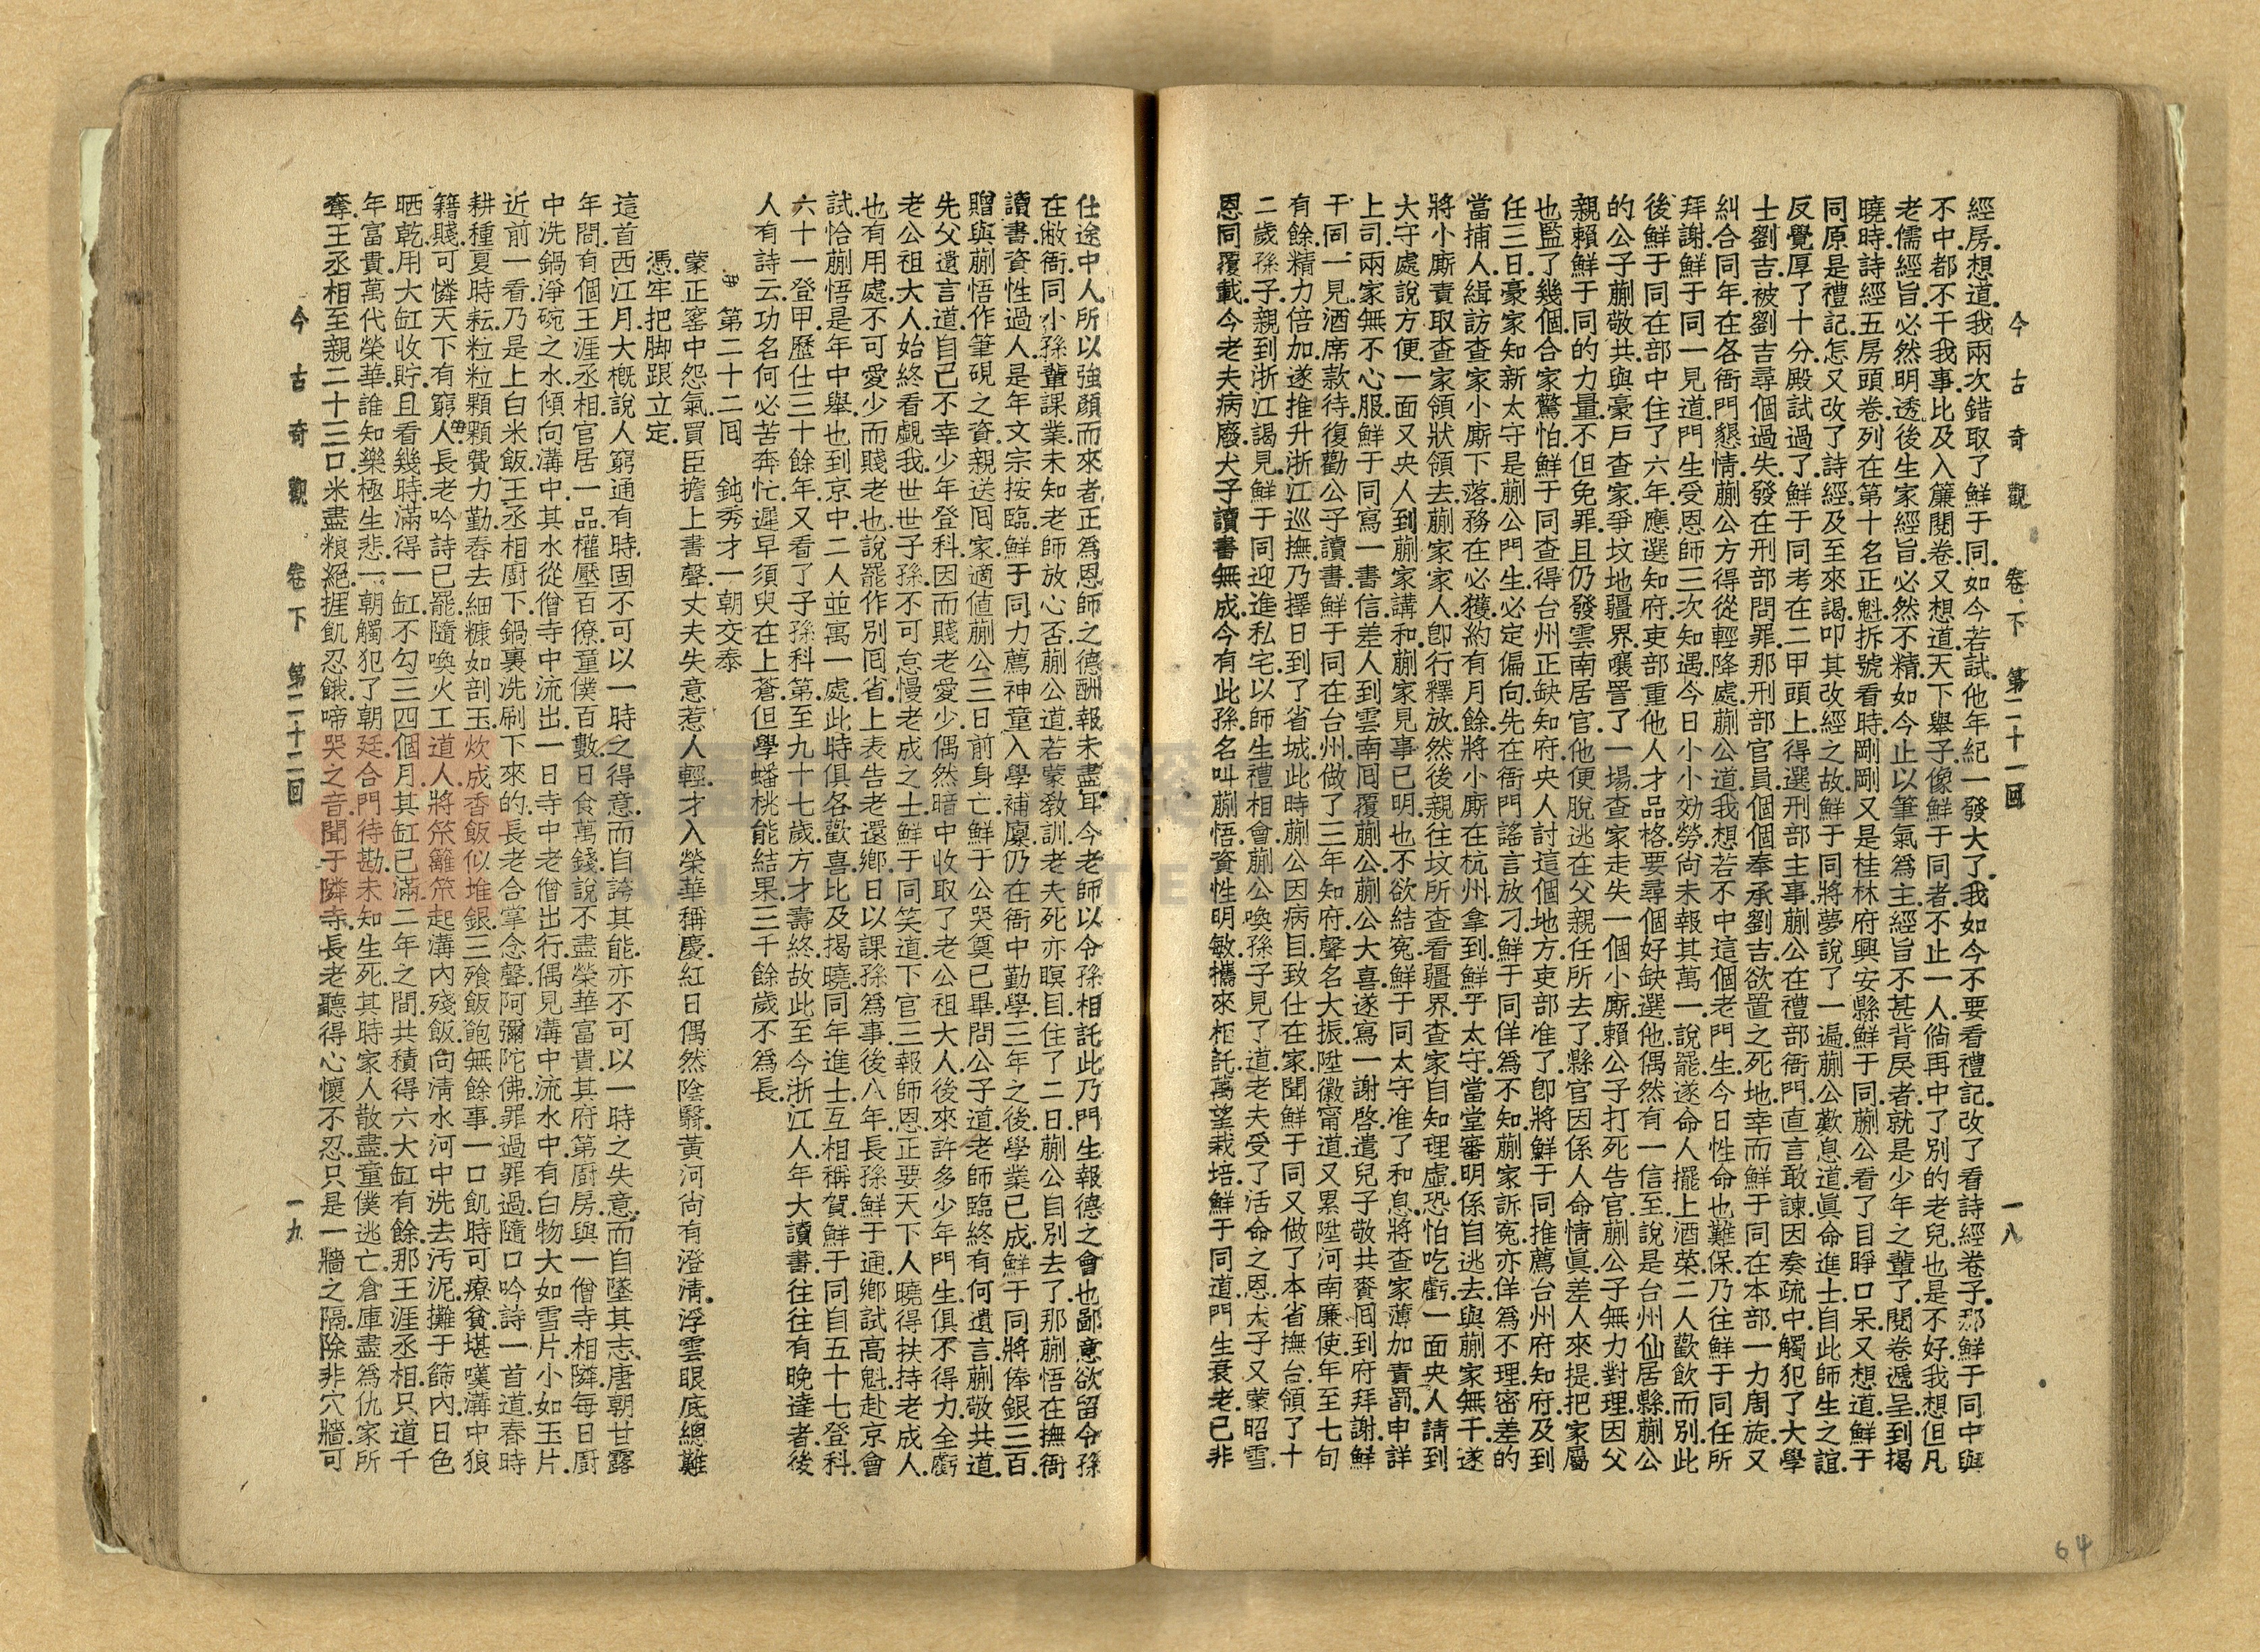 今古奇觀 卷下 第二十一回 一八
經房.想道.我兩次錯取了鮮于同.如今若試.他年紀一發大了.我如今不要看禮記.改了看詩經卷子.那鮮于同中與
不中.都不干我事.比及入簾閱卷.又想道.天下舉子.像鮮于同者.不止一人.倘再中了別的老兒.也是不好.我想但凡
老儒經旨.必然明透.後生家經旨.必然不精.如今止以筆氣爲主.經旨不甚背戾者.就是少年之輩了.閱卷遞呈.到揭
曉時.詩經五房頭卷.列在第十名正魁.拆號看時.剛剛又是桂林府興安縣鮮于同.蒯公看了.目睜口呆.又想道.鮮于
同原是禮記.怎又改了詩經.及至來謁.叩其改經之故.鮮于同將夢說了一遍.蒯公歎息道.眞命進士.自此師生之誼.
反覺厚了十分.殿試過了.鮮于同考在二甲頭上.得選刑部主事.蒯公在禮部衙門.直言敢諫.因奏疏中觸犯了大學
士劉吉.被劉吉尋個過失.發在刑部問罪.那刑部官員.個個奉承劉吉.欲置之死地.幸而鮮于同在本部.一力周旋.又
糾合同年.在各衙門懇情.蒯公方得從輕降處.蒯公道.我想若不中這個老門生.今日性命也難保.乃往鮮于同任所
拜謝.鮮于同一見道.門生受恩師三次知遇.今日小小効勞.尚未報其萬一.說罷.遂命人擺上酒菜.二人歡飲而別.此
後鮮于同在部中住了六年.應選知府.吏部重他人才品格.要尋個好缺選他.偶然有一信至.說是台州仙居縣蒯公
的公子蒯敬共.與豪戶查家.爭坟地疆界.嚷詈了一場.查家走失一個小廝.賴公子打死告官.蒯公子無力對理.因父
親賴鮮于同的力量.不但免罪.且仍發雲南居官.他便脫逃在父親任所去了.縣官因係人命情眞.差人來提.把家屬
也監了幾個.合家驚怕.鮮于同查得台州正缺知府.央人討這個地方.吏部准了.卽將鮮于同推薦台州府知府.及到
任三日.豪家知新太守是蒯公門生.必定偏向.先在衙門謠言放刁.鮮于同佯爲不知.蒯家訴寃.亦佯爲不理.密差的
當捕人.緝訪查家小廝下落.務在必獲.約有月餘.將小廝在杭州拿到.鮮于太守.當堂審明.係自逃去.與蒯家無干.遂
將小廝責取查家領狀領去.蒯家家人.卽行釋放.然後親往坟所.查看疆界.查家自知理虛.恐怕吃虧.一面央人請到
大守處說方便.一面又央人到蒯家講和.蒯家見事已明.也不欲結寃.鮮于同太守准了和息.將查家薄加責罰.申詳
上司.兩家無不心服.鮮于同寫一書信.差人到雲南囘覆蒯公.蒯公大喜.遂寫一謝啓.遣兒子敬共賫囘到府拜謝.鮮
于同一見.酒席款待.復勸公子讀書.鮮于同在台州.做了三年知府.聲名大振.陞徽甯道.又累陞河南廉使.年至七旬
有餘.精力倍加.遂推升浙江巡撫.乃擇日到了省城.此時蒯公因病目.致仕在家.聞鮮于同又做了本省撫台.領了十
二歲孫子.親到浙江謁見.鮮于同迎進私宅.以師生禮相會.蒯公喚孫子見了.道.老夫受了活命之恩.犬子又蒙昭雪.
恩同覆載.今老夫病廢.犬子讀書無成.今有此孫.名叫蒯悟.資性明敏.攜來相託.萬望栽培.鮮于同道.門生衰老.已非
仕途中人.所以強顏而來者.正爲恩師之德.酬報未盡耳.今老師以令孫相託.此乃門生報德之會也.鄙意欲留令孫
在敝衙.同小孫輩課業.未知老師放心否.蒯公道.若蒙敎訓.老夫死亦瞑目.住了二日.蒯公自別去了.那蒯悟在撫衙
讀書.資性過人.是年文宗按臨.鮮于同力薦神童入學.補廩.仍在衙中勤學.三年之後.學業已成.鮮于同將俸銀三百.
贈與蒯悟作筆硯之資.親送囘家.適値蒯公三日前身亡.鮮于公哭奠已畢.問公子道.老師臨終有何遺言.蒯敬共道.
先父遺言道.自己不幸.少年登科.因而賤老愛少.偶然暗中收取了老公祖大人.後來許多少年門生.俱不得力.全虧
老公祖大人.始終看覷.我世世子孫.不可怠慢老成之士.鮮于同笑道.下官三報師恩.正要天下人曉得扶持老成人
也有用處.不可愛少而賤老也.說罷作別囘省.上表告老還鄉.日以課孫爲事.後八年.長孫鮮于通.鄉試高魁.赴京會
試.恰蒯悟是年中舉.也到京中.二人並寓一處.此時俱各歡喜.比及揭曉.同年進士.互相稱賀.鮮于同自五十七登科.
六十一登甲.歷仕三十餘年.又看了子孫科第.至九十七歲方才壽終.故此至今浙江人年大讀書.往往有晚達者.後
人有詩云.功名何必苦奔忙.遲早須臾在上蒼.但學蟠桃能結果.三千餘歲不爲長.
第二十二囘　鈍秀才一朝交泰
蒙正窰中怨氣.買臣擔上書聲.丈夫失意惹人輕.才入榮華稱慶.紅日偶然陰翳.黃河尚有澄清.浮雲眼底總難
憑.牢把脚跟立定.
這首西江月.大槪說人窮通有時.固不可以一時之得意.而自誇其能.亦不可以一時之失意.而自墜其志.唐朝甘露
年間.有個王涯丞相.官居一品.權壓百僚.童僕百數.日食萬錢.說不盡榮華富貴.其府第厨房.與一僧寺相隣.每日厨
中洗鍋淨碗之水.傾向溝中.其水從僧寺中流出.一日寺中老僧出行.偶見溝中流水中.有白物大如雪片.小如玉片.
近前一看.乃是上白米飯.王丞相厨下.鍋裏洗刷下來的.長老合掌念聲.阿彌陀佛.罪過罪過.隨口吟詩一首道.春時
耕種夏時耘.粒粒顆顆費力勤.舂去細糠如剖玉.炊成香飯似堆銀.三飱飯飽無餘事.一口飢時可療貧.堪嘆溝中狼
籍賤.可憐天下有窮人.長老吟詩已罷.隨喚火工道人.將笊籬笊起溝內殘飯.向淸水河中洗去汚泥.攤于篩內.日色
晒乾.用大缸收貯.且看幾時滿得一缸.不勾三四個月.其缸已滿.二年之間.共積得六大缸有餘.那王涯丞相.只道千
年富貴.萬代榮華.誰知樂極生悲.一朝觸犯了朝廷.合門待勘.未知生死.其時家人散盡.童僕逃亡.倉庫盡爲仇家所
奪.王丞相至親二十三口.米盡粮絕.捱飢忍餓.啼哭之音.聞于隣寺.長老聽得.心懷不忍.只是一牆之隔.除非穴牆可
今古奇觀 卷下 第二十二回 一九
64